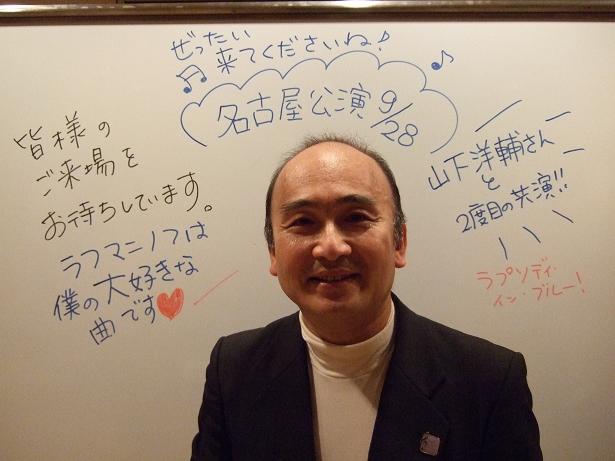 ぜったい
来てくださいね!
名古屋公演9/28
皆様の
ご来場を
お待ちしています。
ラフマニノフは
僕の大好きな
曲です
山下洋輔さん
と
2度目の共演!!
ラプソディ・
イン・ブルー!